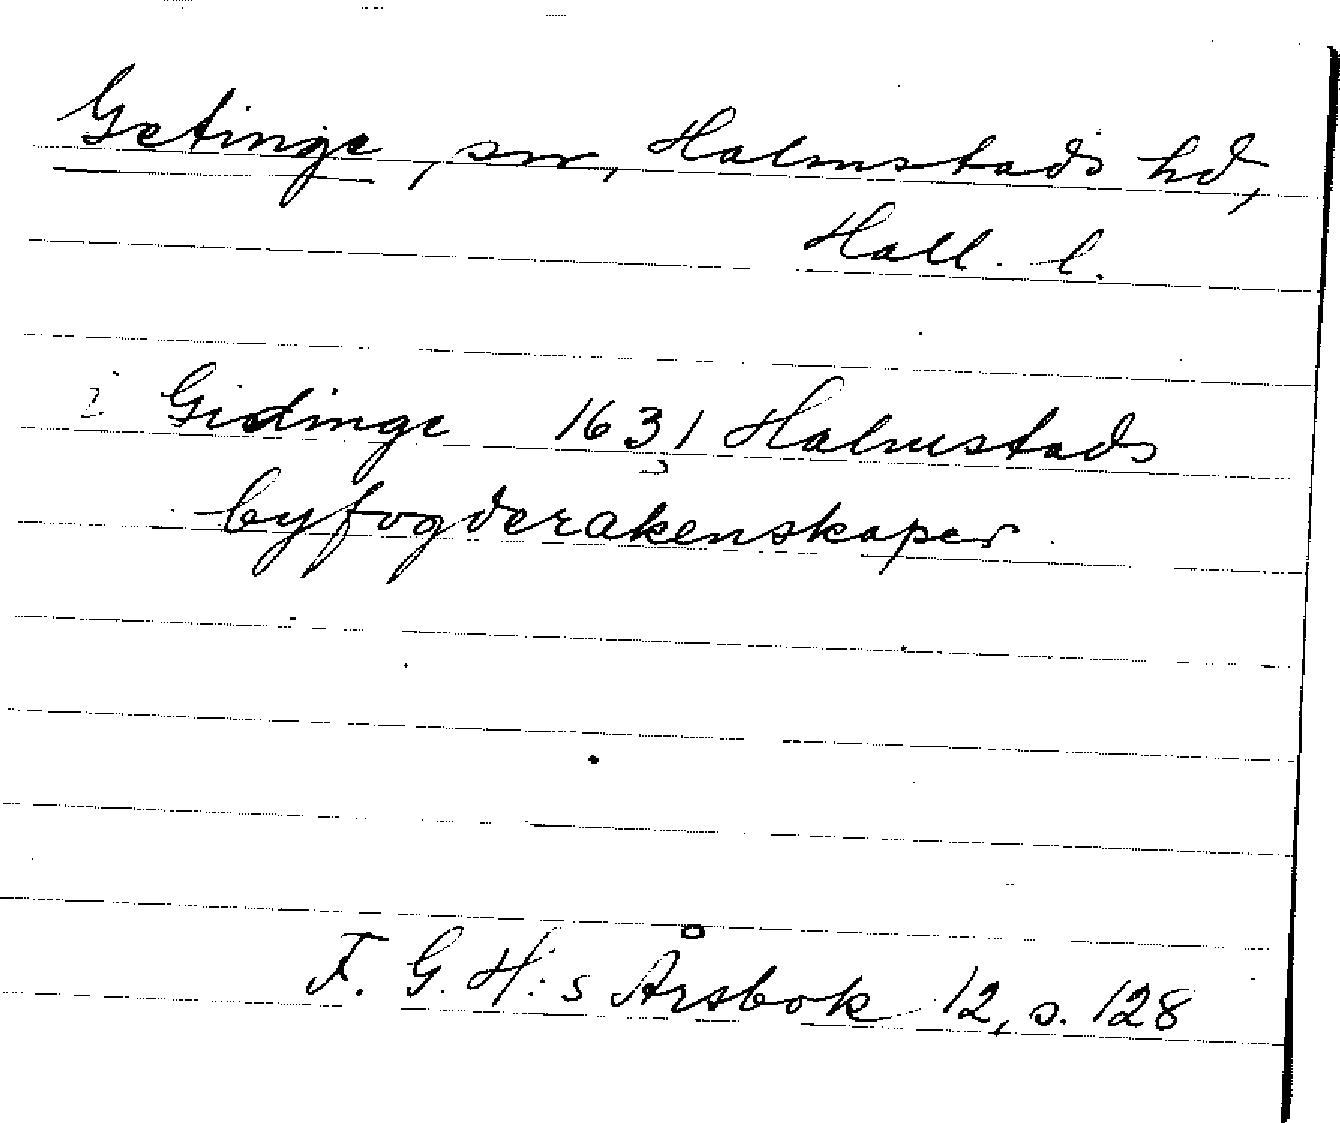 Getinge, sn, Halmstads hd,
Hall. l.
i Gidinge 1631 Halmstads
byfogderakenskaper
F. G. H:s Årsbok 12, s. 128